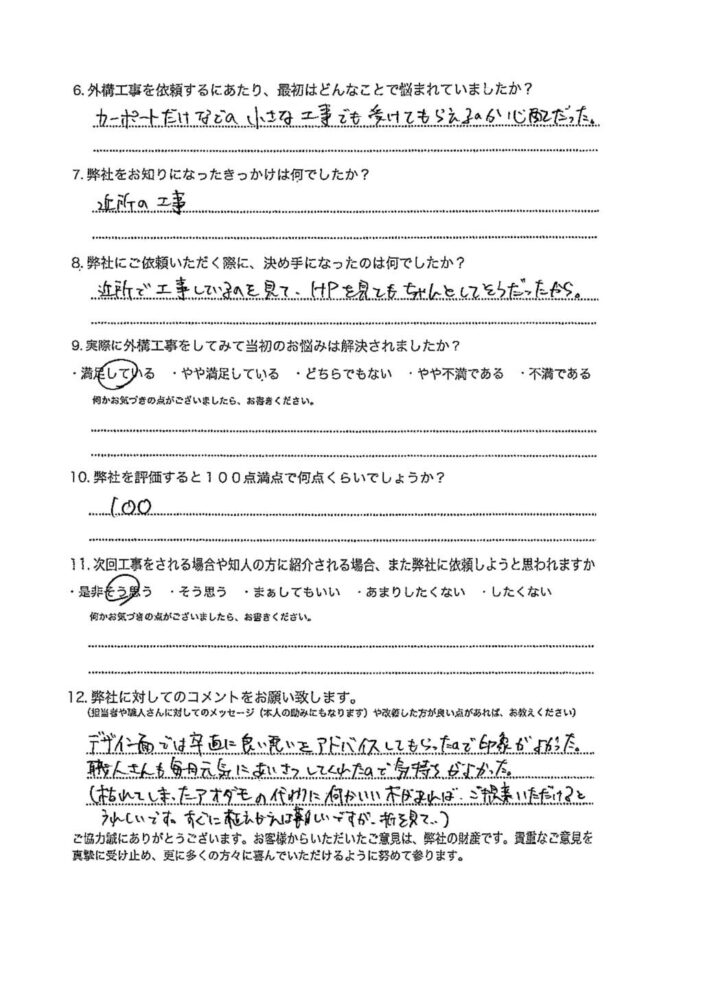 6. 外構工事を依頼するにあたり、最初はどんなことで悩まれていましたか？
カーポートだけなどの 小さな工事でも 受けてもらえるのか心配だった。
7. 弊社をお知りになったきっかけは何でしたか？
近所の工事
8. 弊社にご依頼いただく際に、決め手になったのは何でしたか？
近所で工事しているのを見て、HPを見てもちゃんとしてそうだったから。
9. 実際に外構工事をしてみて当初のお悩みは解決されましたか？
・満足している ・やや満足している ・どちらでもない ・やや不満である ・不満である
何かお気づきの点がございましたら、お書きください。
10. 弊社を評価すると１００点満点で何点くらいでしょうか？
100
11. 次回工事をされる場合や知人の方に紹介される場合、また弊社に依頼しようと思われますか
・是非そう思う ・そう思う ・まぁしてもいい ・あまりしたくない ・したくない
何かお気づきの点がございましたら、お書きください。
12. 弊社に対してのコメントをお願い致します。
（担当者や職人さんに対してのメッセージ（本人の励みにもなります）や改善した方が良い点があれば、お教えください）
デザイン面では率直に良い悪いとアドバイスしてもらったので印象がよかった。
職人さんも毎日元気にあいさつしてくれたので気持ちがよかった。
(枯れてしまったアオダモの代わりに何かいい木があれば、ご提案いただけると
うれしいです。すぐに植えかえは難しいですが、折を見て、、)
ご協力誠にありがとうございます。お客様からいただいたご意見は、弊社の財産です。貴重なご意見を
真摯に受け止め、更に多くの方々に喜んでいただけるように努めて参ります。